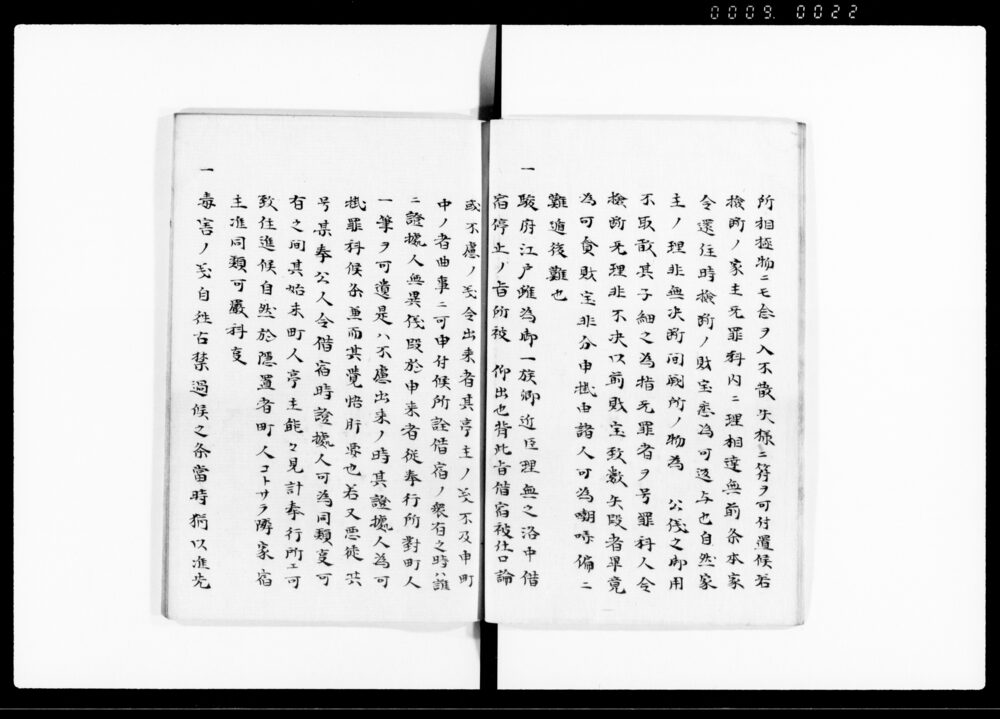 0009. 0022
所相極物ニモ念ヲ入不散失様ニ符ヲ可付置候若
検断ノ家主无罪科内ニ理相違無前条本家
令還住時検断ノ財宝悉為可返与也自然家
主ノ理非無決断间闕所ノ物為 公儀之御用
不取散其子細之為指无罪者ヲ号罪科人令
検断无理非不决以前財宝致散失段者畢竟
為可貪財宝非分申掠由諸人可為嘲哢偏ニ
難遁後難也
一 駿府江戸雖為御一族卿近臣理無之洛中借
宿停止ノ旨所被 仰出也背此旨借宿被仕口論
或不慮ノ義令出来者其亭主ノ義不及申町
中ノ者曲事ニ可申付候所詮借宿ノ衆有之時ハ誰
ニ證拠人無異儀段於申来者従奉行所對町人
一筆ヲ可遺是ハ不慮出来ノ時其證拠人為可
掛罪科候条兼而其覚悟肝要也若又悪徒共
号某奉公人令借宿時證拠人可為同類事可
有之间其始末町人亭主能々見計奉行所エ可
致住進候自然於隠置者町人コトサラ隣家宿
主准同類可厳科事
一 毒害ノ義自往古禁過候之条當時猶以准先